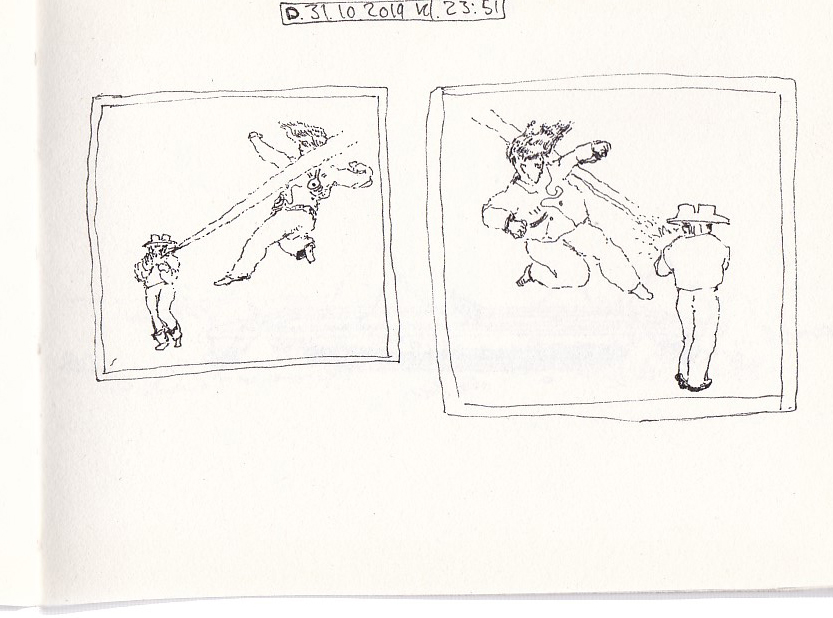 D. 31.10 2019 kl. 23:51